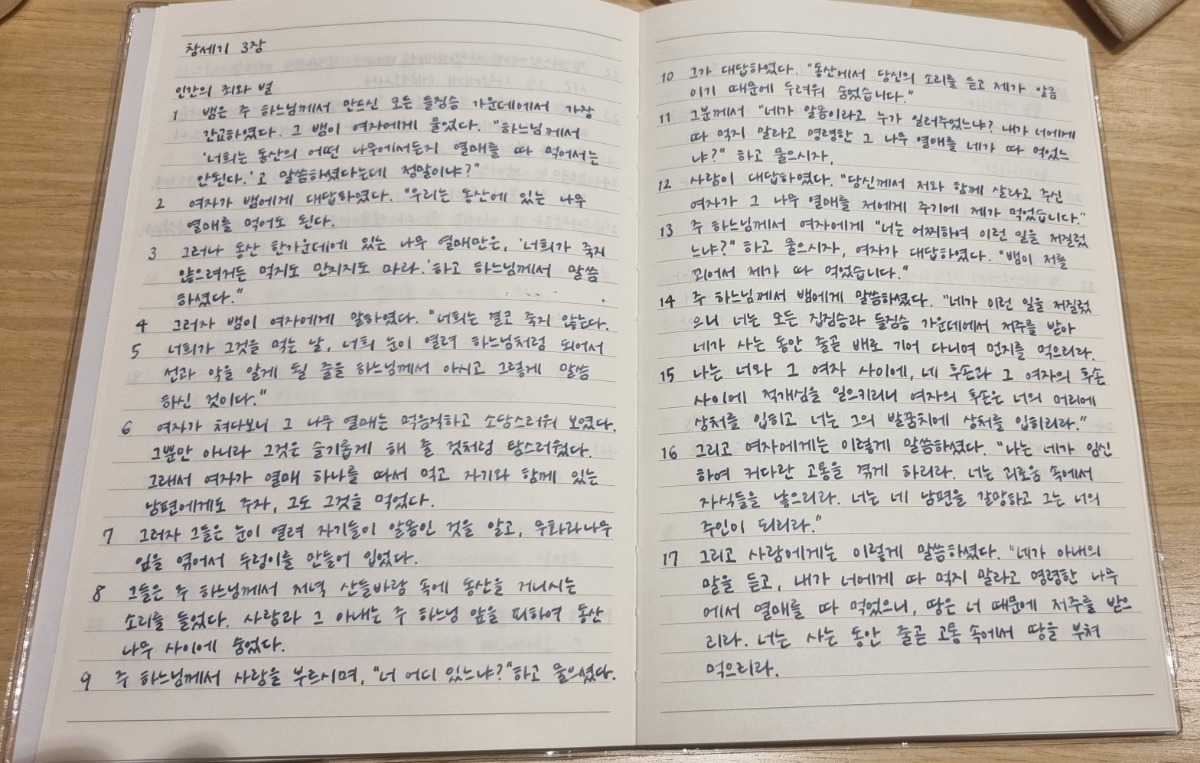 창세기 3장
인간의 죄와 벌
1 뱀은 주 하느님께서 만드신 모든 들짐승 가운데에서 가장
간교하였다. 그 뱀이 여자에게 물었다. "하느님께서
'너희는 동산의 어떤 나무에서든지 열매를 따 먹어서는
안된다.'고 말씀하셨다는데 정말이냐?"
2 여자가 뱀에게 대답하였다. "우리는 동산에 있는 나무
열매를 먹어도 된다.
3 그러나 동산 한가운데에 있는 나무 열매만은, '너희가 죽지
않으려거든 먹지도 만지지도 마라.'하고 하느님께서 말씀
하셨다."
4 그러자 뱀이 여자에게 말하였다. "너희는 결코 죽지 않는다.
5 너희가 그것을 먹는 날, 너희 눈이 열려 하느님처럼 되어서
선과 악을 알게 될 줄을 하느님께서 아시고 그렇게 말씀
하신 것이다."
6 여자가 쳐다보니 그 나무 열매는 먹음직하고 소담스러워 보였다.
그뿐만 아니라 그것은 슬기롭게 해 줄 것처럼 탐스러웠다.
그래서 여자가 열매 하나를 따서 먹고 자기와 함께 있는
남편에게도 주자, 그도 그것을 먹었다.
7 그러자 그들은 눈이 열려 자기들이 알몸인 것을 알고, 무화과나무
잎을 엮어서 두렁이를 만들어 입었다.
8 그들은 주 하느님께서 저녁 산들바람 속에 동산을 거니시는
소리를 들었다. 사람과 그 아내는 주 하느님 앞을 피하여 동산
나무 사이에 숨었다.
9 주 하느님께서 사람을 부르시며, "너 어디 있느냐?"하고 물으셨다.
10 그가 대답하였다. "동산에서 당신의 소리를 듣고 제가 알몸
이기 때문에 두려워 숨었습니다."
11 그분께서 "네가 알몸이라고 누가 일러주었느냐? 내가 너에게
따 먹지 말라고 명령한 그 나무 열매를 네가 따 먹었느
냐?" 하고 물으시자,
12 사람이 대답하였다. "당신께서 저와 함께 살라고 주신
여자가 그 나무 열매를 저에게 주기에 제가 먹었습니다."
13 주 하느님께서 여자에게 "너는 어찌하여 이런 일을 저질렀
느냐?" 하고 물으시자, 여자가 대답하였다. "뱀이 저를
꾀어서 제가 따 먹었습니다."
14 주 하느님께서 뱀에게 말씀하셨다. "네가 이런 일을 저질렀
으니 너는 모든 집짐승과 들짐승 가운데에서 저주를 받아
네가 사는 동안 줄곧 배로 기어 다니며 먼지를 먹으리라.
15 나는 너와 그 여자 사이에, 네 후손과 그 여자의 후손
사이에 적개심을 일으키리니 여자의 후손은 너의 머리에
상처를 입히고 너는 그의 발꿈치에 상처를 입히리라."
16 그리고 여자에게는 이렇게 말씀하셨다. "나는 네가 임신
하여 커다란 고통을 겪게 하리라. 너는 괴로움 속에서
자식들을 낳으리라. 너는 네 남편을 갈망하고 그는 너의
주인이 되리라."
17 그리고 사람에게는 이렇게 말씀하셨다. "네가 아내의
말을 듣고, 내가 너에게 따 먹지 말라고 명령한 나무
에서 열매를 따 먹었으니, 땅은 너 때문에 저주를 받으
리라. 너는 사는 동안 줄곧 고통 속에서 땅을 부쳐
먹으리라.